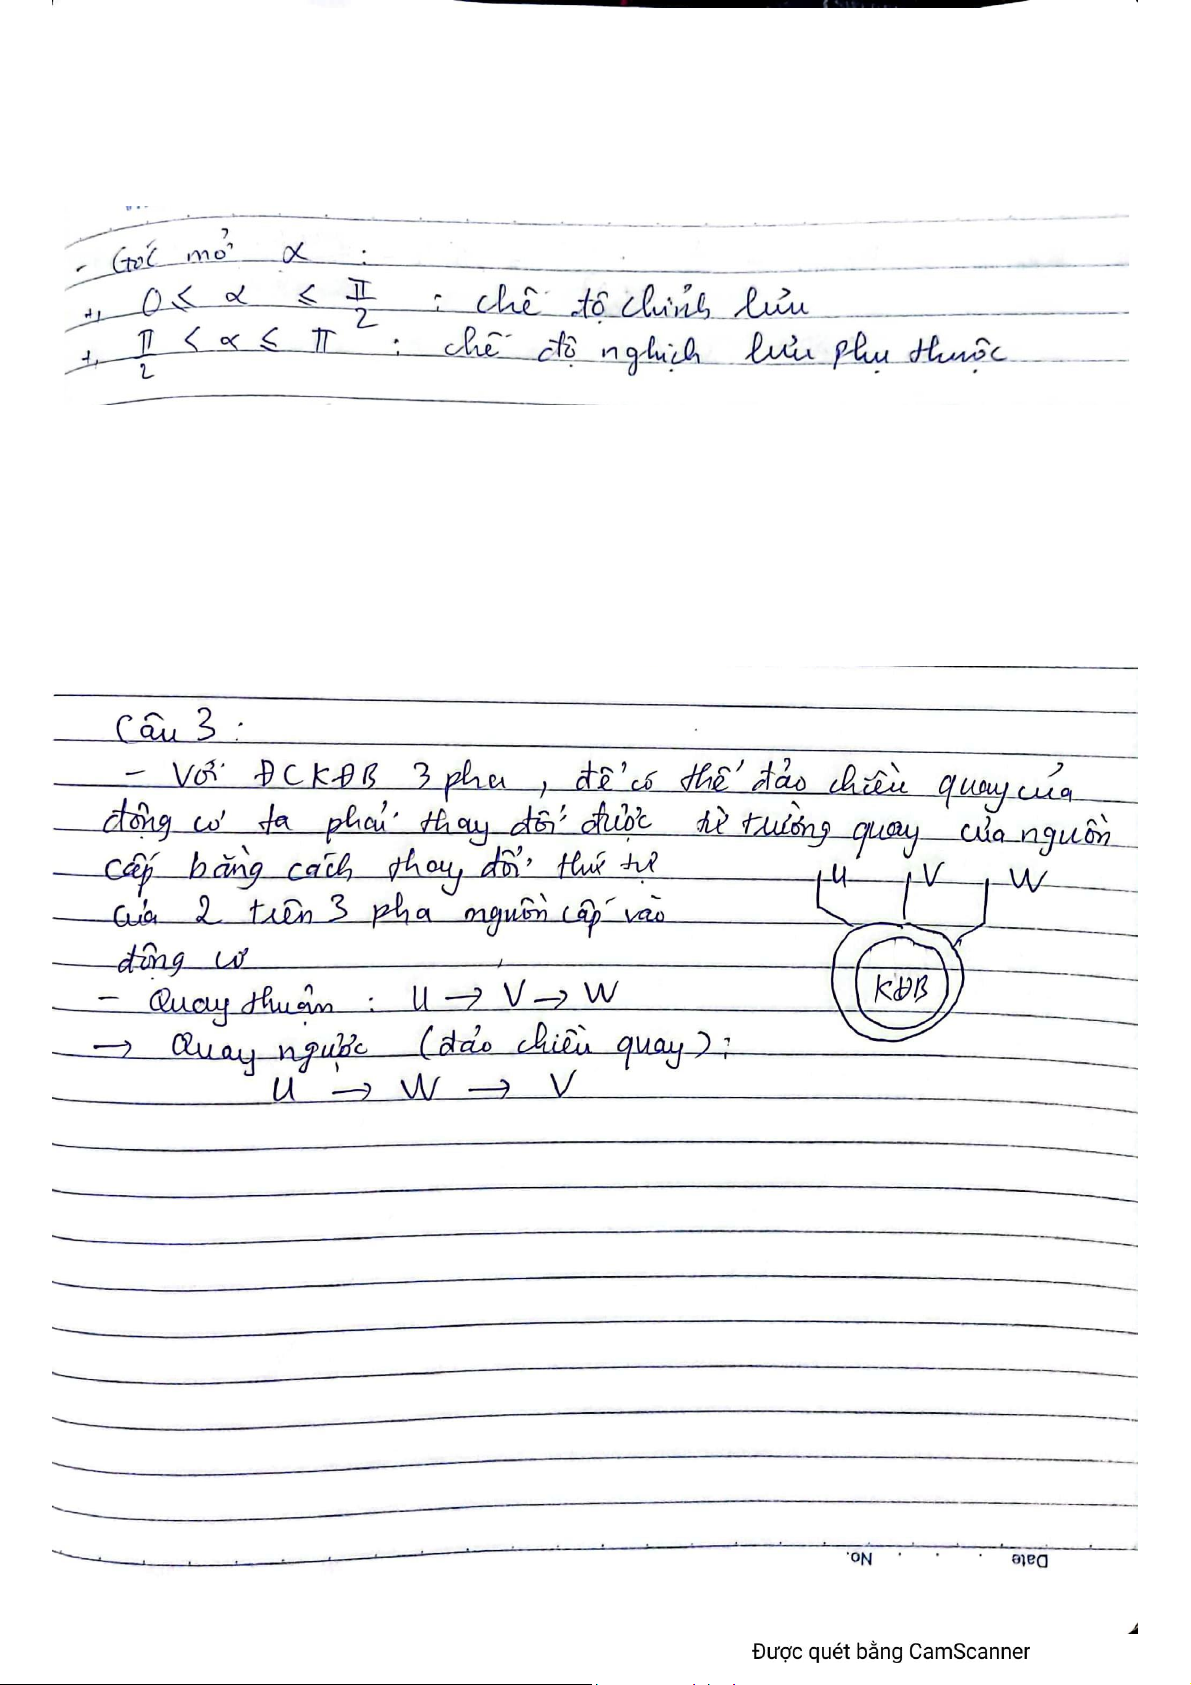 - Góc mở α :
+, 0 ≤ α ≤ π/2 : chế tộ chỉnh lưu
+, π/2 < α ≤ π : chế độ nghịch lưu phụ thuộc
Câu 3 :
- Với ĐCKĐB 3 pha , để có thể đảo chiều quay của
động cơ ta phải thay đổi được từ trường quay của nguồn
cấp bằng cách thay đổi thứ tự
của 2 trên 3 pha nguồn cấp vào
động cơ
U V W
KĐB
- Quay thuận : U → V → W
→ Quay ngược (đảo chiều quay) :
U → W → V
No. Date
Được quét bằng CamScanner